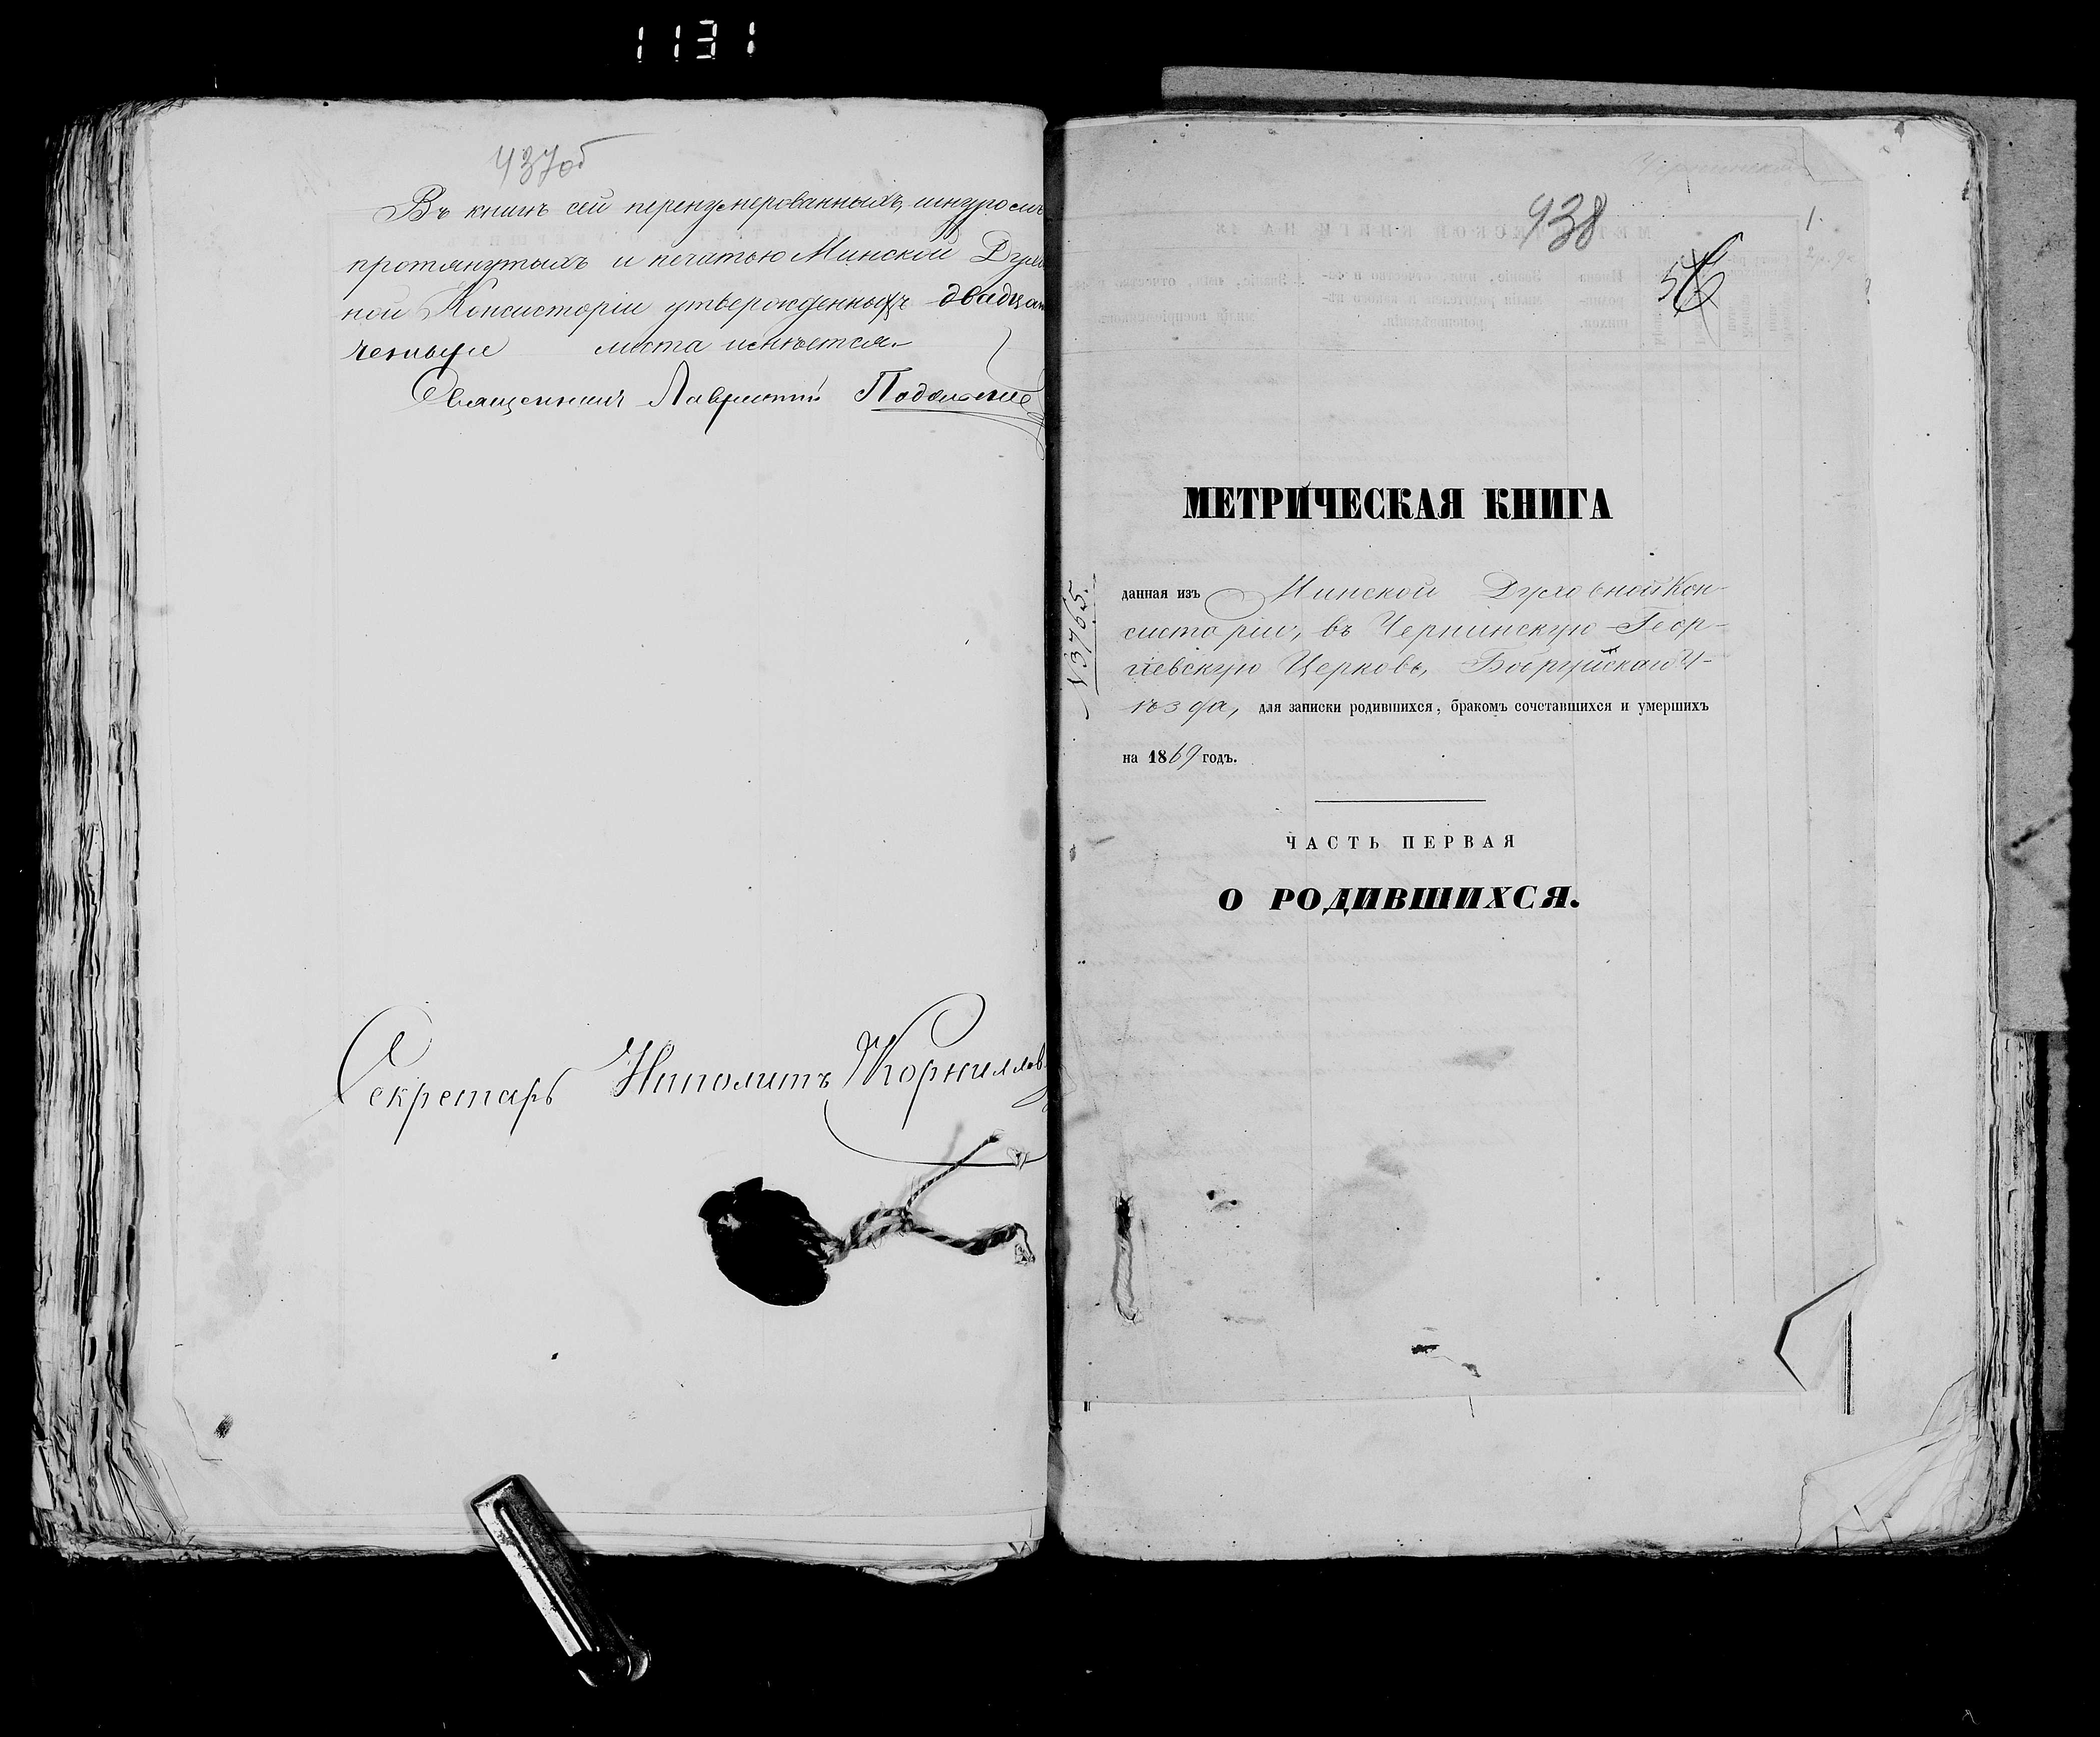 1131
437об
Въ книгѣ сей перенумерованныхъ, шнуромъ
протянутыхъ и печатью Минской Духов
ной Консисторіи утвержденныхъ двадцать
четыре листа имѣется.
Священникъ Лаврентій Подольскій
Секретарь Иполитъ Корнилов
938
1.
МЕТРИЧЕСКАЯ КНИГА
N 3765.
данная изъ Минской Духовной Кон-
систоріи, въ Чернинскую Геор-
гіевскую Церковь, Бобруйскаго У-
ѣзда, для записки родившихся, бракомъ сочетавшихся и умершихъ
на 1869 годъ.
ЧАСТЬ ПЕРВАЯ
О РОДИВШИХСЯ.